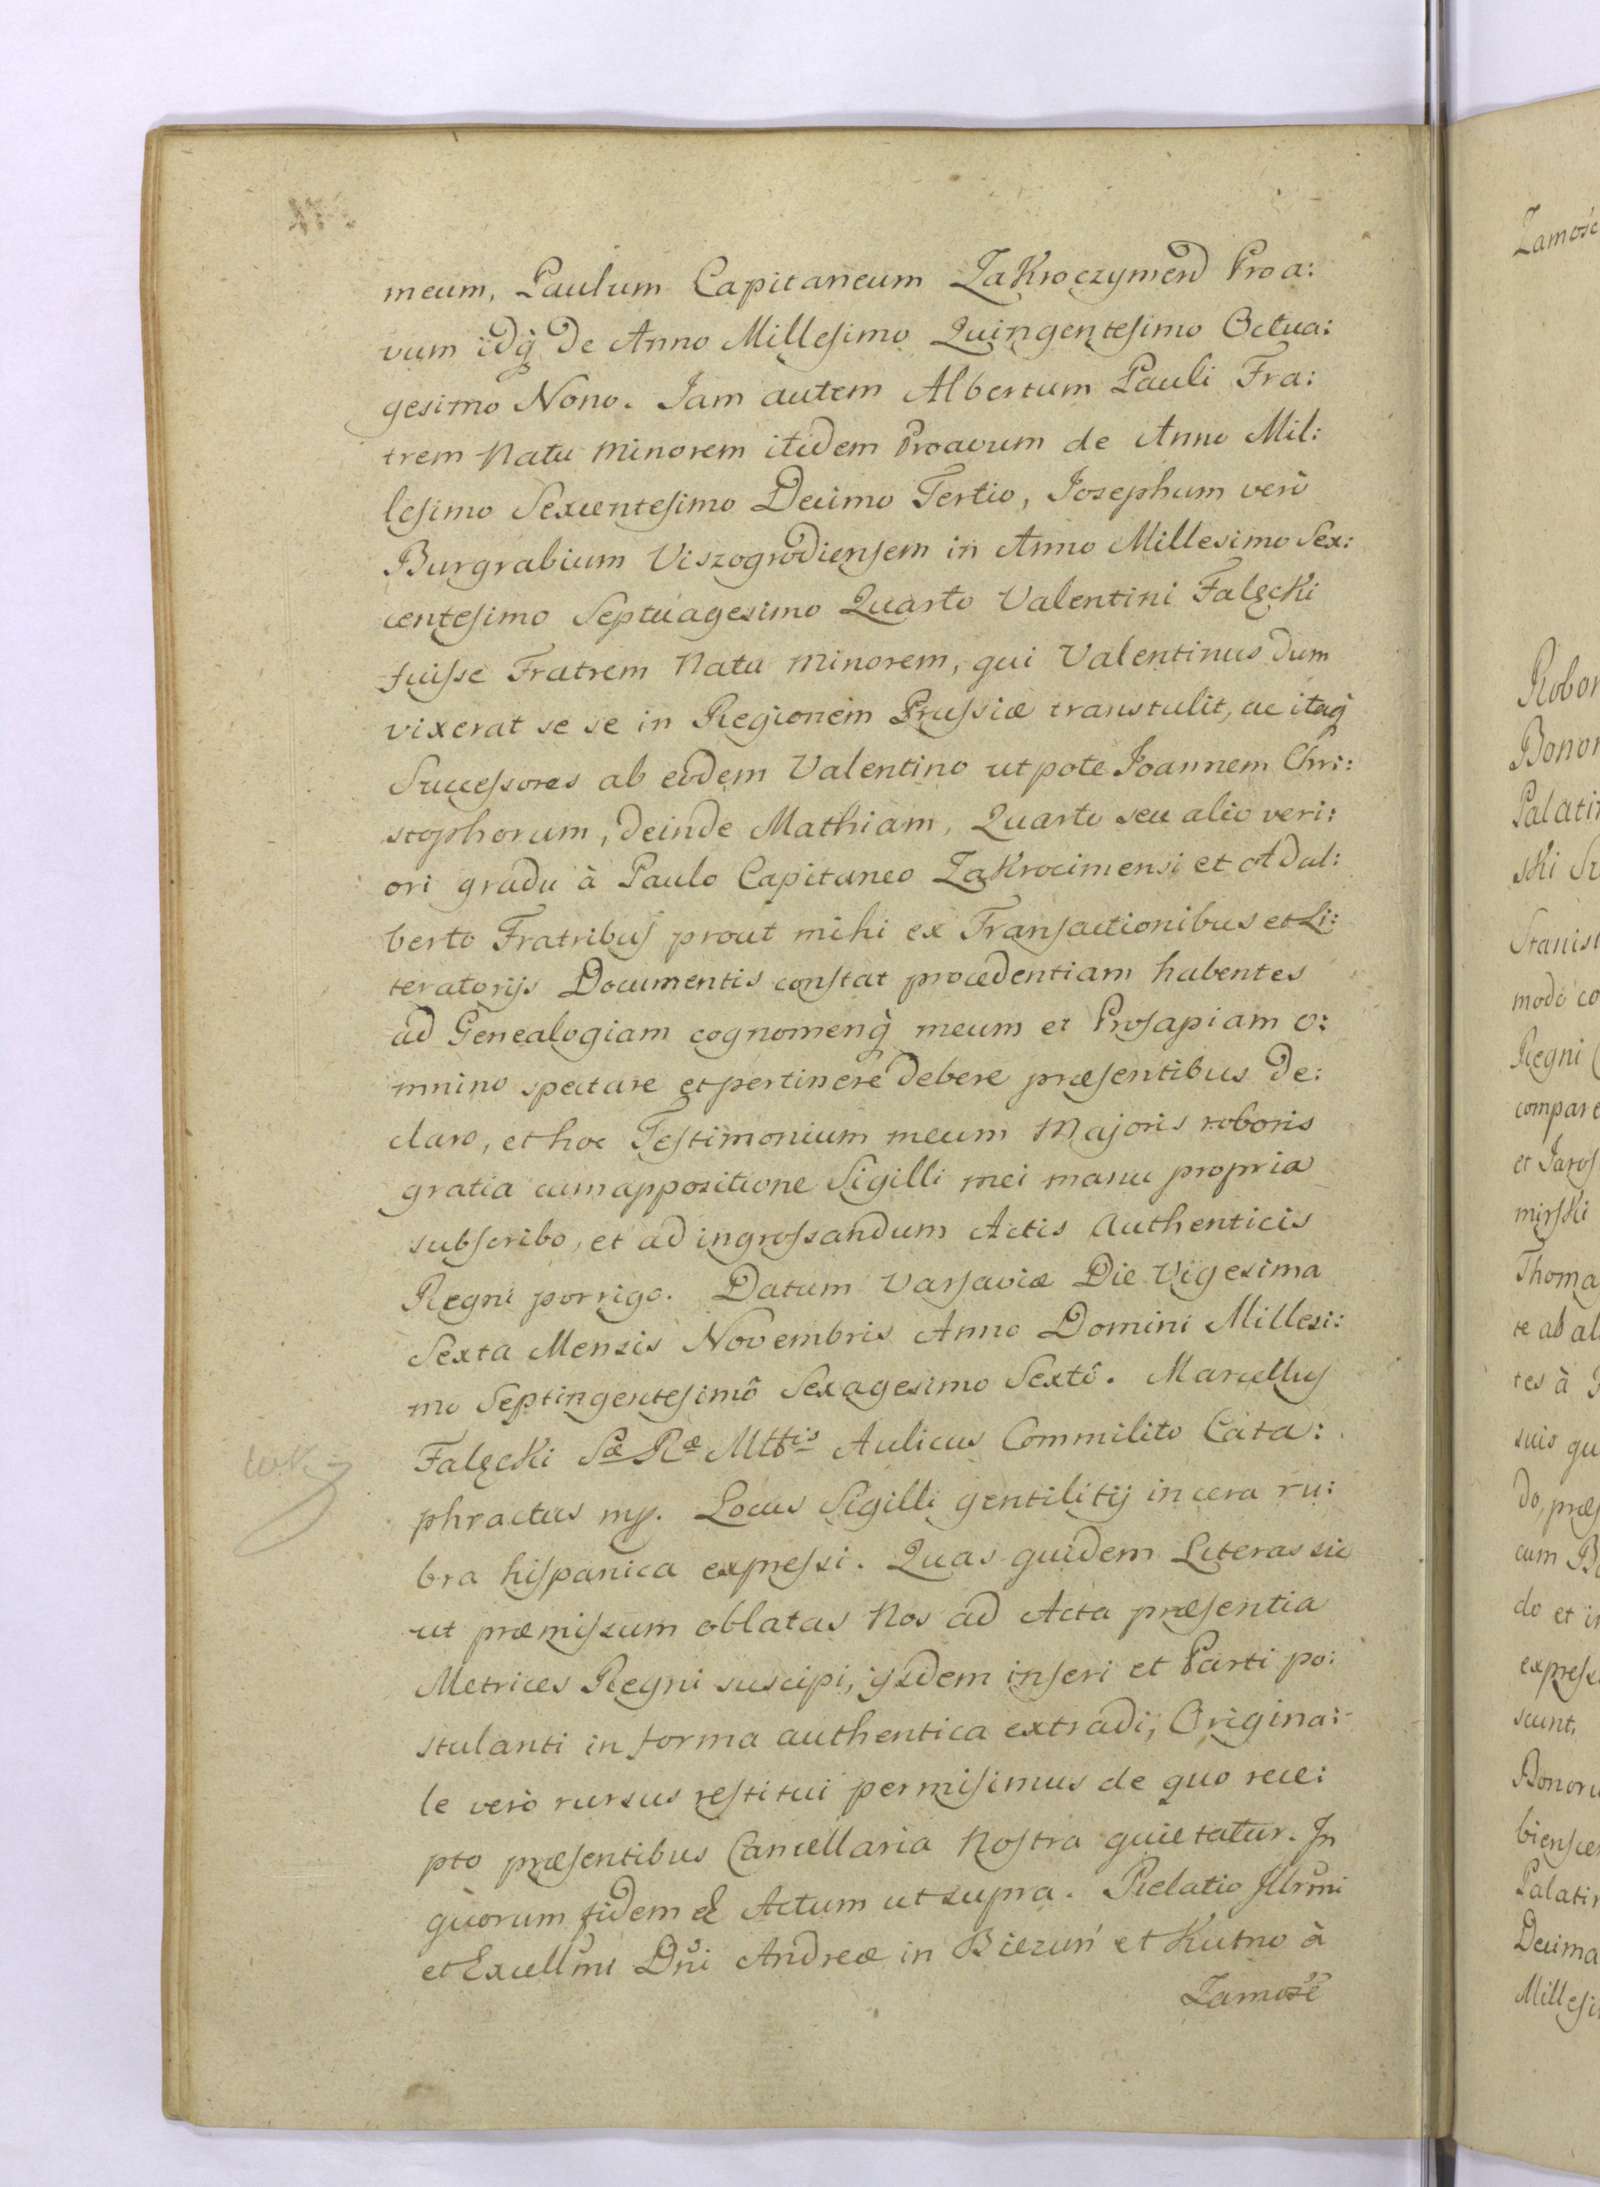 meum, Paulum Capitaneum Zakroczymen Proa:
vum idq̀ de Anno Millesimo Quingentesimo Octua:
gesimo Nono. Jam autem Albertum Pauli Fra:
trem Natu Minorem itidem Proavum de Anno Mil:
lesimo Sexcentesimo Decimo Tertio, Josephum verò
Burgrabium Viszogrodiensem in Anno Millesimo Sex:
centesimo Septuagesimo Quarto Valentini Falęcki
fuisse Fratrem Natu Minorem, qui Valentinus dum
vixerat se se in Regionem Prussiæ transtulit, ac itaq̀
Successores ab eodem Valentino utpote Joannem Chri:
stophorum, deinde Mathiam, Quarto seu alio veri:
ori gradu à Paulo Capitaneo Zakrocimensi et Adal:
berto Fratribus prout mihi ex Transactionibus et Li:
teratorijs Documentis constat procedentiam habentes
ad Genealogiam cognomenq̀ meum et Prosapiam o:
mnino spectare et pertinere debere præsentibus de:
claro, et hoc Testimonium meum Majoris roboris
gratia cum appositione Sigilli mei manu propria
subscribo, et ad ingrossandum Actis Authenticis
Regni porrigo. Datum Varsaviæ Die Vigesima
Sexta Mensis Novembris Anno Domini Millesi:
mo Septingentesimô Sexagesimo Sextô. Marcellus
Falęcki Sæ Ræ Mttis Aulicus Commilito Cata:
phractus mp. Locus Sigilli gentilitij in cera ru:
bra hispanica expressi. Quas quidem Literas sic
ut præmissum oblatas Nos ad Acta præsentia
Metrices Regni suscipi, ijsdem inseri et Parti po:
stulanti in forma authentica extradi, Origina:
le verò rursus restitui permisimus de quo rece:
pto præsentibus Cancellaria Nostra quietatur. In
quorum fidem & Actum ut supra. Relatio Illrmi
et Excellmi Dni Andreæ in Bieżuń et Kutno à
Zamość
Zamość
Robor
Bonor
Palatin
ski St
Stanisl
modo co
Regni
compare
et Jaros
mirski
Thoma
te ab al
tes à
suis qu
do, præs
cum
do et in
expres
sunt,
Bonoru
biensce
Palatin
Decima
Millesi